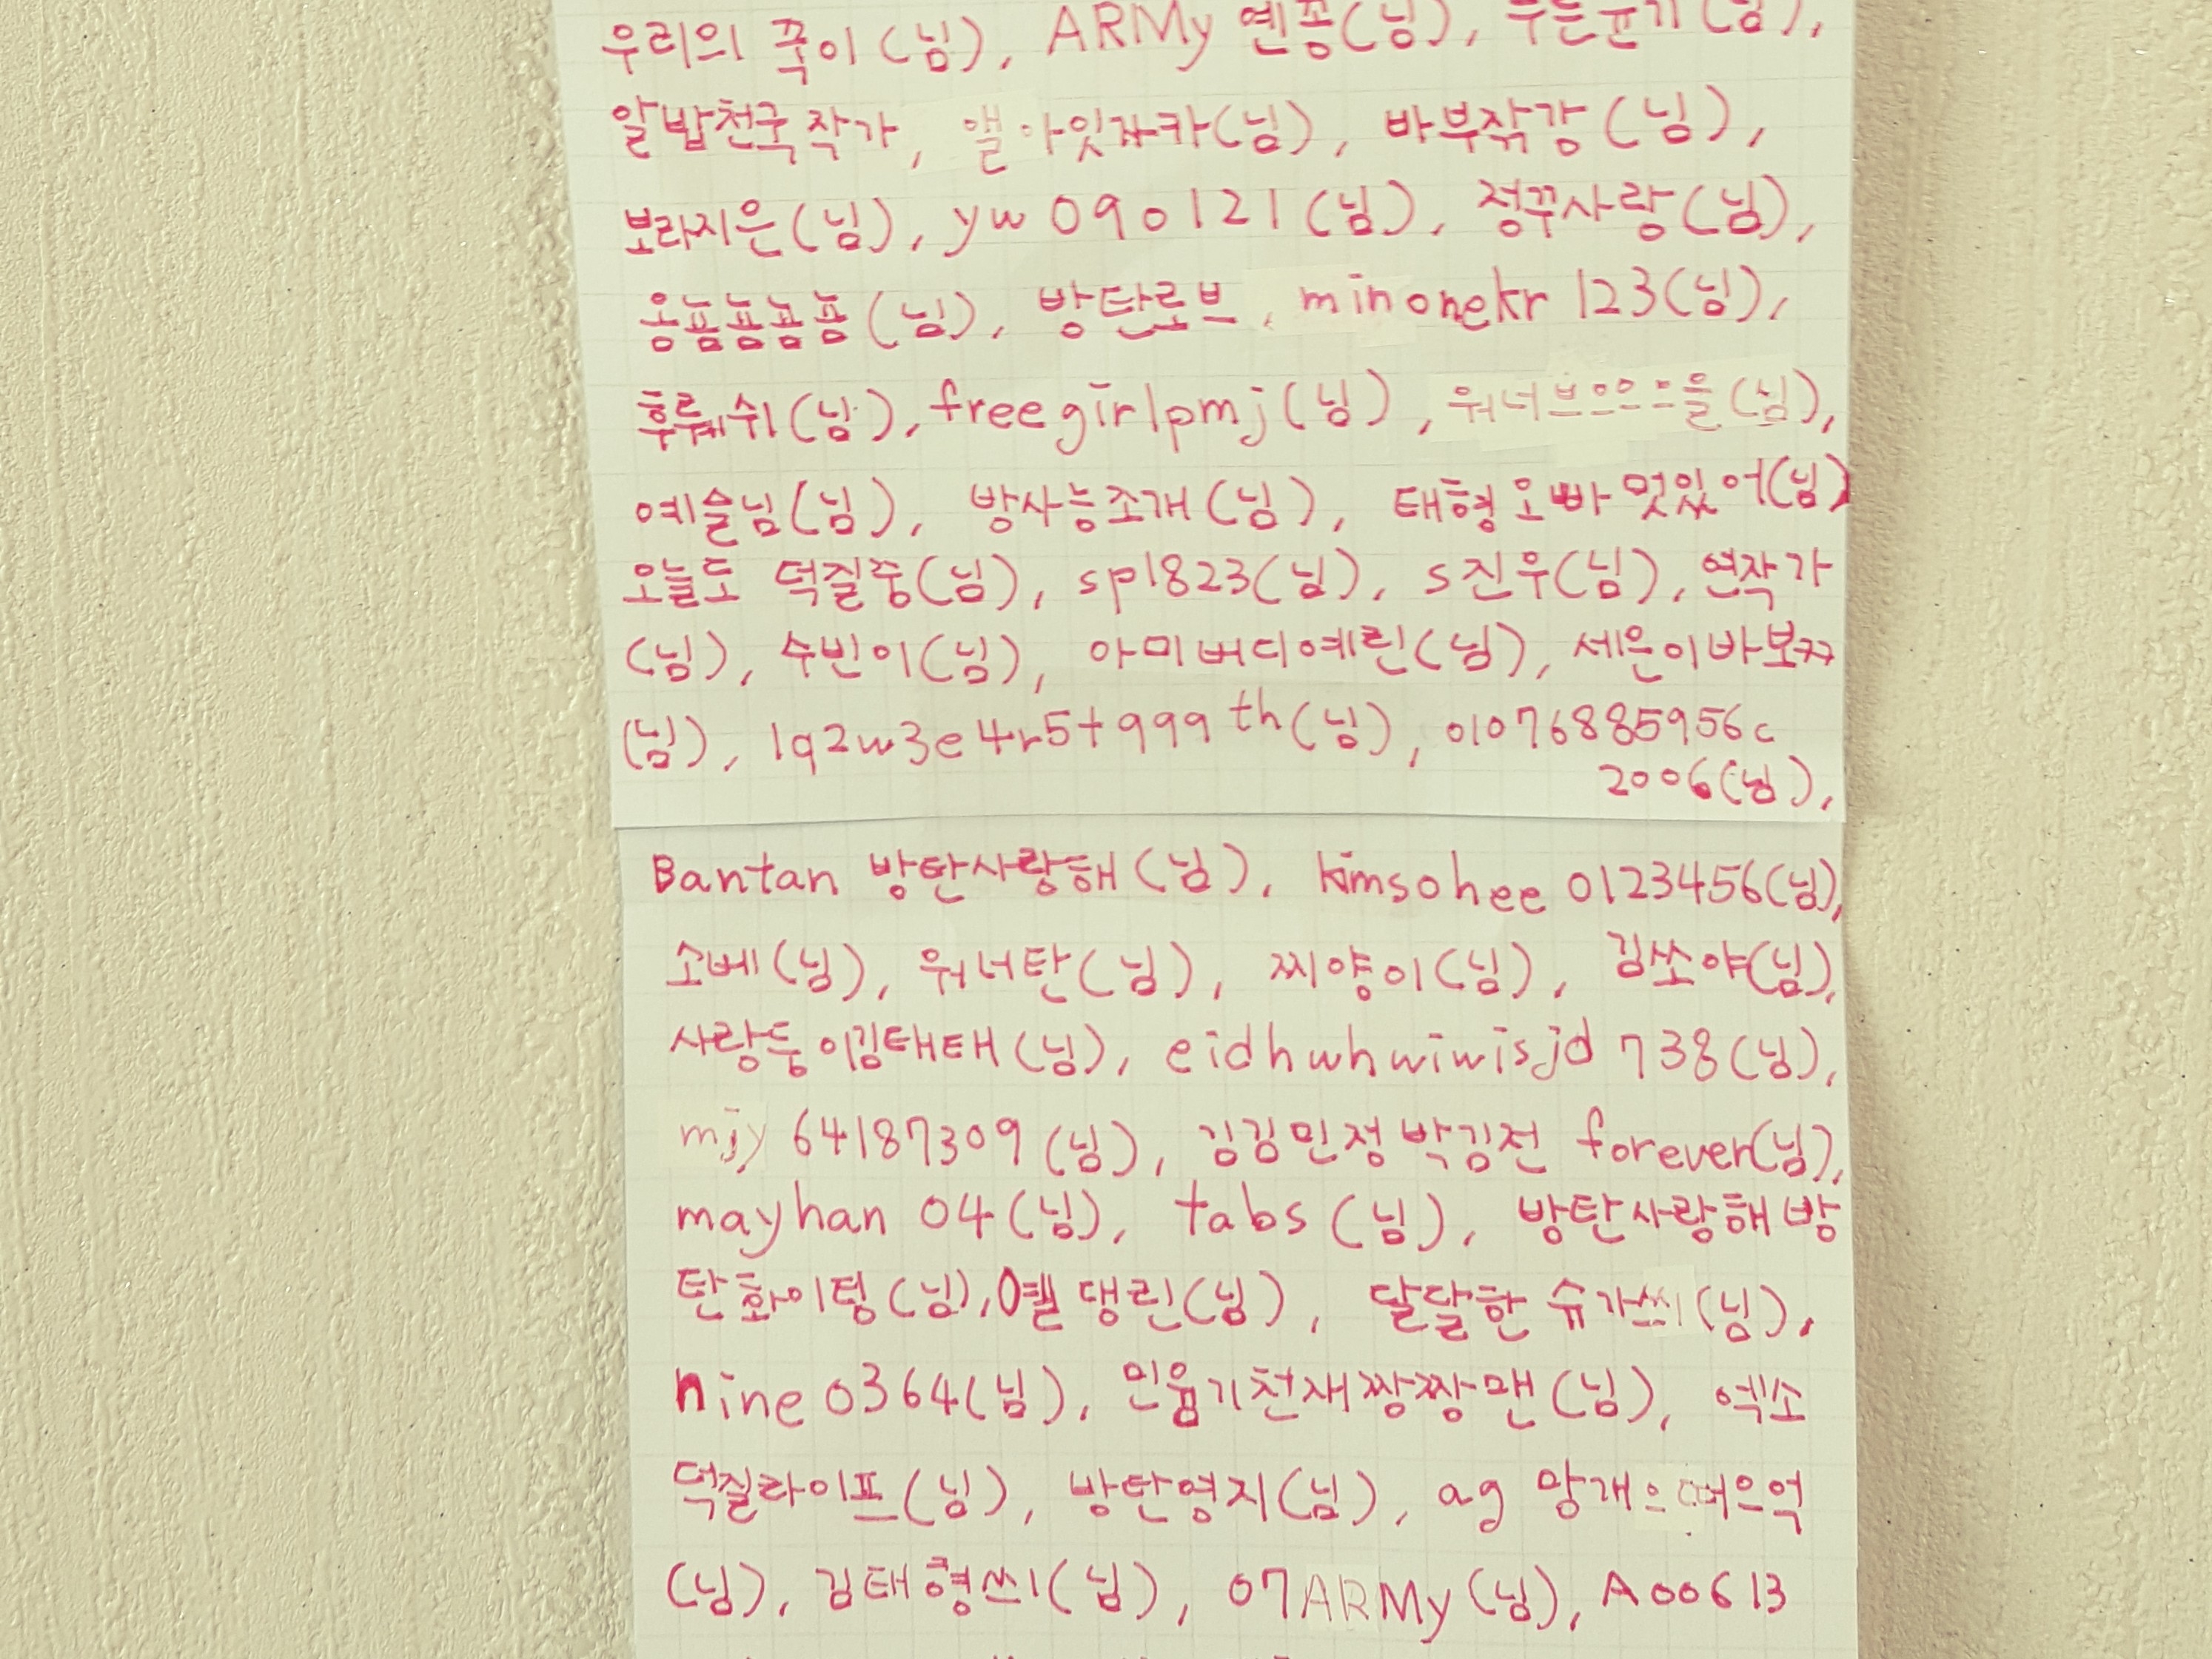 우리의 쭉이(님), ARMy 옌꽁(님),
알밥천국작가, 앨아잇쟈카(님), 바부작강(님),
보라지은(님), yw090121(님), 정꾸사랑(님),
옹뇽뇽뇽뇽(님), 방탄로브, minonekr 123(님),
후뤠쉬(님), freegirlpmj(님), 워너브으으으을(님),
예슬님(님), 방사능조개(님), 태형오빠멋있어(님)
오늘도 덕질중(님), sp1823(님), s진우(님), 연작가
(님), 수빈이(님), 아미버디예린(님), 세운이바보ㅋㅋ
(님), 1q2w3e4r5t999th(님), 01076885956c
2006(님),
Bantan 방탄사랑해(님), kimsohee 0123456(님),
소베(님), 워너탄(님), 찌양이(님), 김쏘야(님),
사랑둥이김태태(님), eidhwhwiwisjd 738(님),
mjy 64187309(님), 김김민정박김전 forever(님),
mayhan 04(님), tabs(님), 방탄사랑해방
탄화이텅(님), 옐댕린(님), 달달한 슈가씨(님),
nine0364(님), 민윤기천재짱짱맨(님), 엑소
덕질라이프(님), 방탄영지(님), ag 망개으때으억
(님), 김태형쓰1(님), 07ARMy(님), A00613